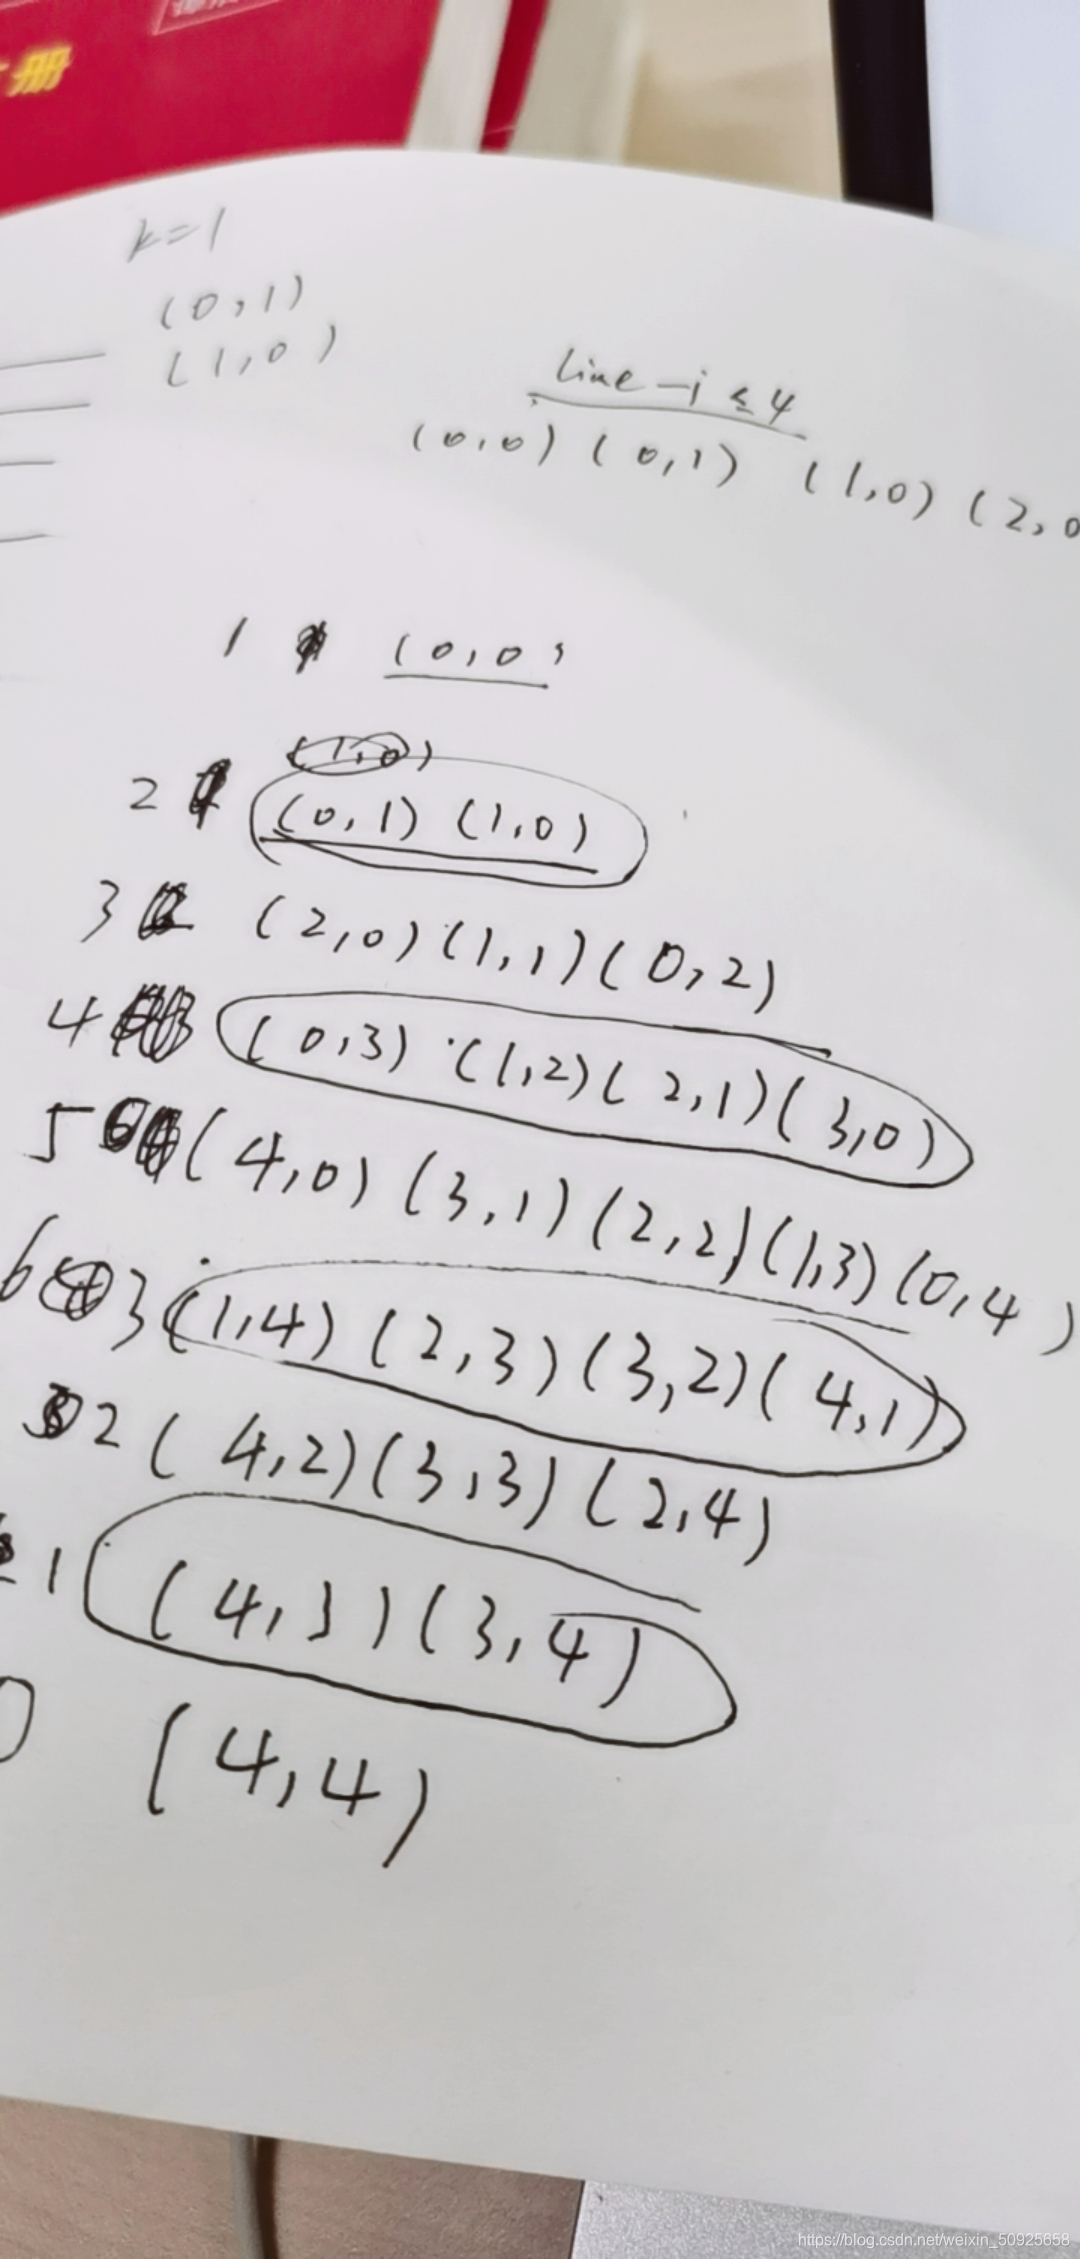 册
k=1
(0,1)
(1,0)
line-i≤4
(0,0) (0,1) (1,0) (2,0
1 (0,0)
(1,0)
2 (0,1) (1,0)
3 (2,0) (1,1) (0,2)
4 (0,3) (1,2) (2,1) (3,0)
5 (4,0) (3,1) (2,2) (1,3) (0,4)
6 3 (1,4) (2,3) (3,2) (4,1)
2 (4,2) (3,3) (2,4)
1 (4,3) (3,4)
0 (4,4)
https://blog.csdn.net/weixin_50925658